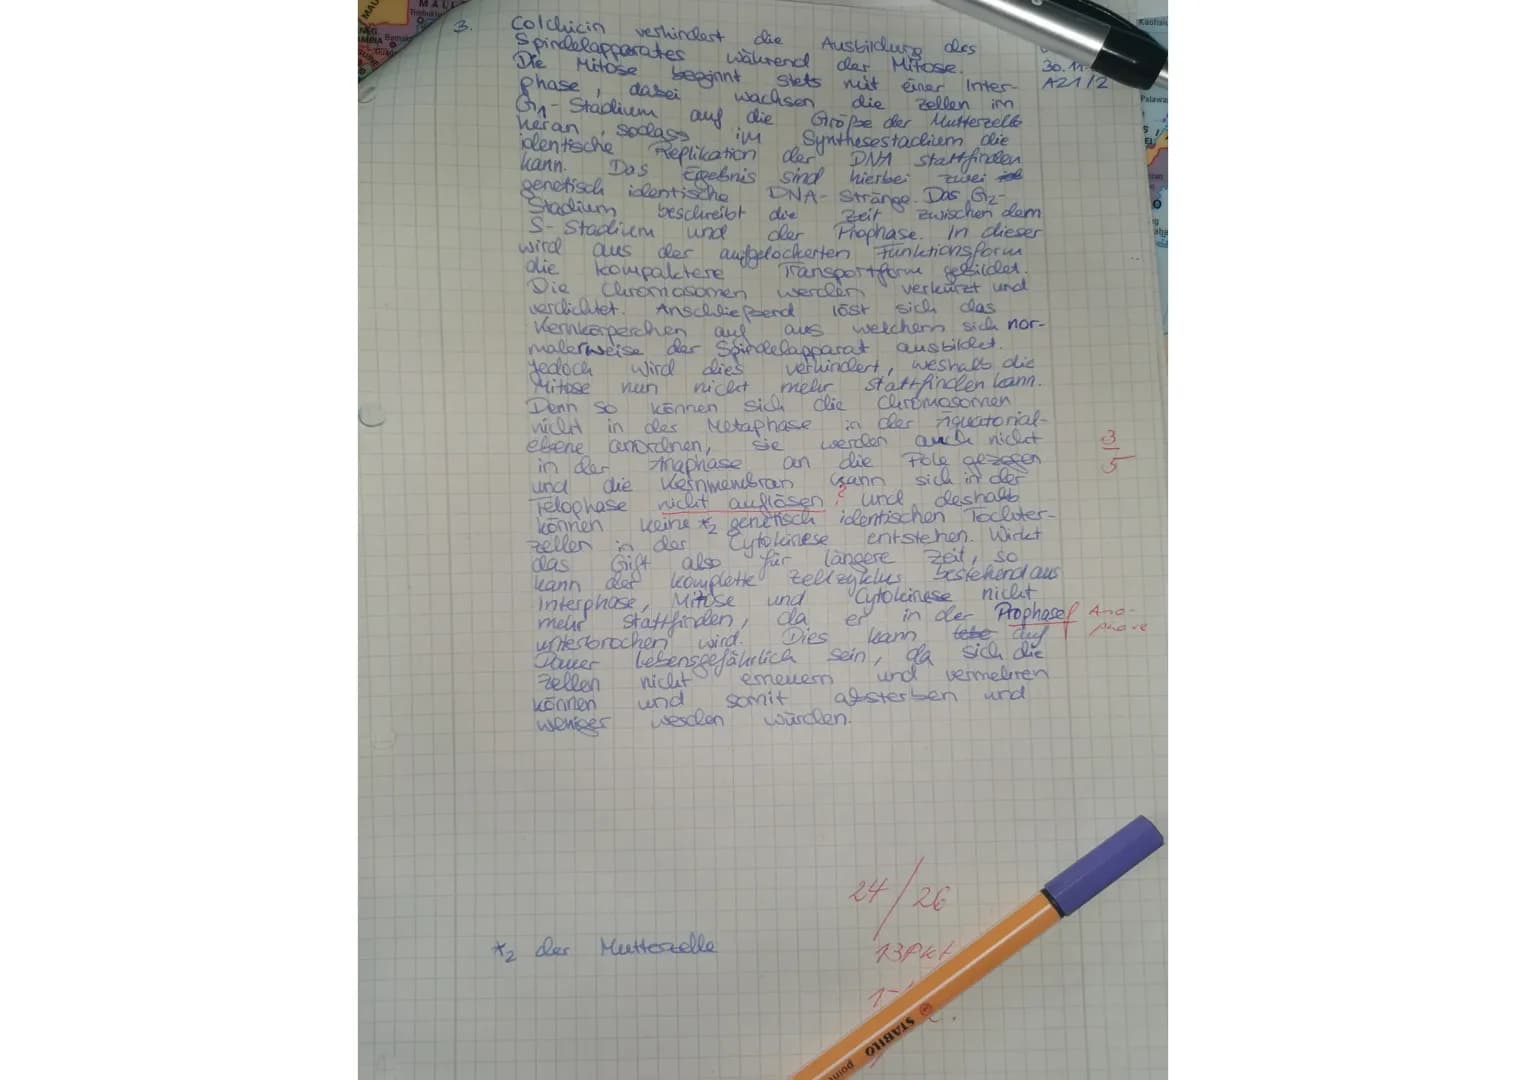 3. Colchicin verhindert die Ausbildung des
Spindelapparates während der Mitose.
30.11.
Die Mitose beginnt stets mit einer Inter-
A21/2
phase, dabei wachsen die Zellen im
G1-Stadium auf die Größe der Mutterzelle
heran, sodass im Synthesestadium die
identische Replikation der DNA stattfinden
kann. Das Ergebnis sind hierbei zwei
genetisch identische DNA-Stränge. Das G2-
Stadium beschreibt die Zeit zwischen dem
S-Stadium und der Prophase. In dieser
wird aus der aufgelockerten Funktionsform
die kompaktere Transportform gebildet.
Die Chromosomen werden verkürzt und
verdichtet. Anschließend löst sich das
Kernkörperchen auf aus welchem sich nor-
malerweise der Spindelapparat ausbildet.
Jedoch wird dies verhindert, weshalb die
Mitose nun nicht mehr stattfinden kann.
Denn so können sich die Chromosomen
nicht in der Metaphase in der Äquatorial-
ebene anordnen, sie werden auch nicht
in der Anaphase an die Pole gezogen
3/5
und die Kernmembran kann sich in der
Telophase nicht auflösen ? und deshalb
können keine *2 genetisch identischen Tochter-
zellen in der Cytokinese entstehen. Wirkt
das Gift also für längere Zeit, so
kann der komplette Zellzyklus bestehend aus
Interphase, Mitose und Cytokinese nicht
mehr stattfinden, da er in der Prophase Ana-
phase
unterbrochen wird. Dies kann auf
Dauer lebensgefährlich sein, da sich die
Zellen nicht erneuern und vermehren
können und somit absterben und
weniger werden würden.
24/26
*2 der Mutterzelle
13Pkt
1-
STABILO
point
MALI
Palawa